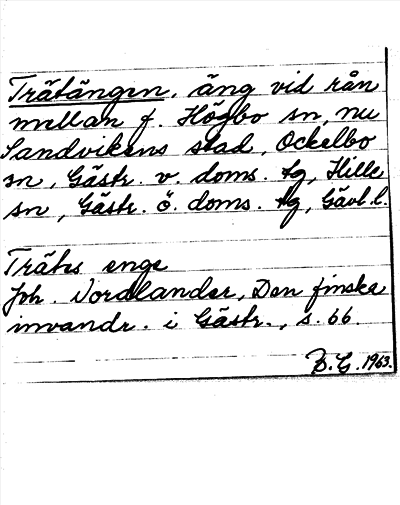 Trätängen, äng vid rån
mellan f. Högbo sn, nu
Sandvikens stad, Ockelbo
sn, Gästr. v. doms. tg, Hille
sn, Gästr. ö. doms. tg, Gävl. l.
Träts enge
Joh. Nordlander, Den finska
invandr. i Gästr., s. 66.
B.G. 1963.